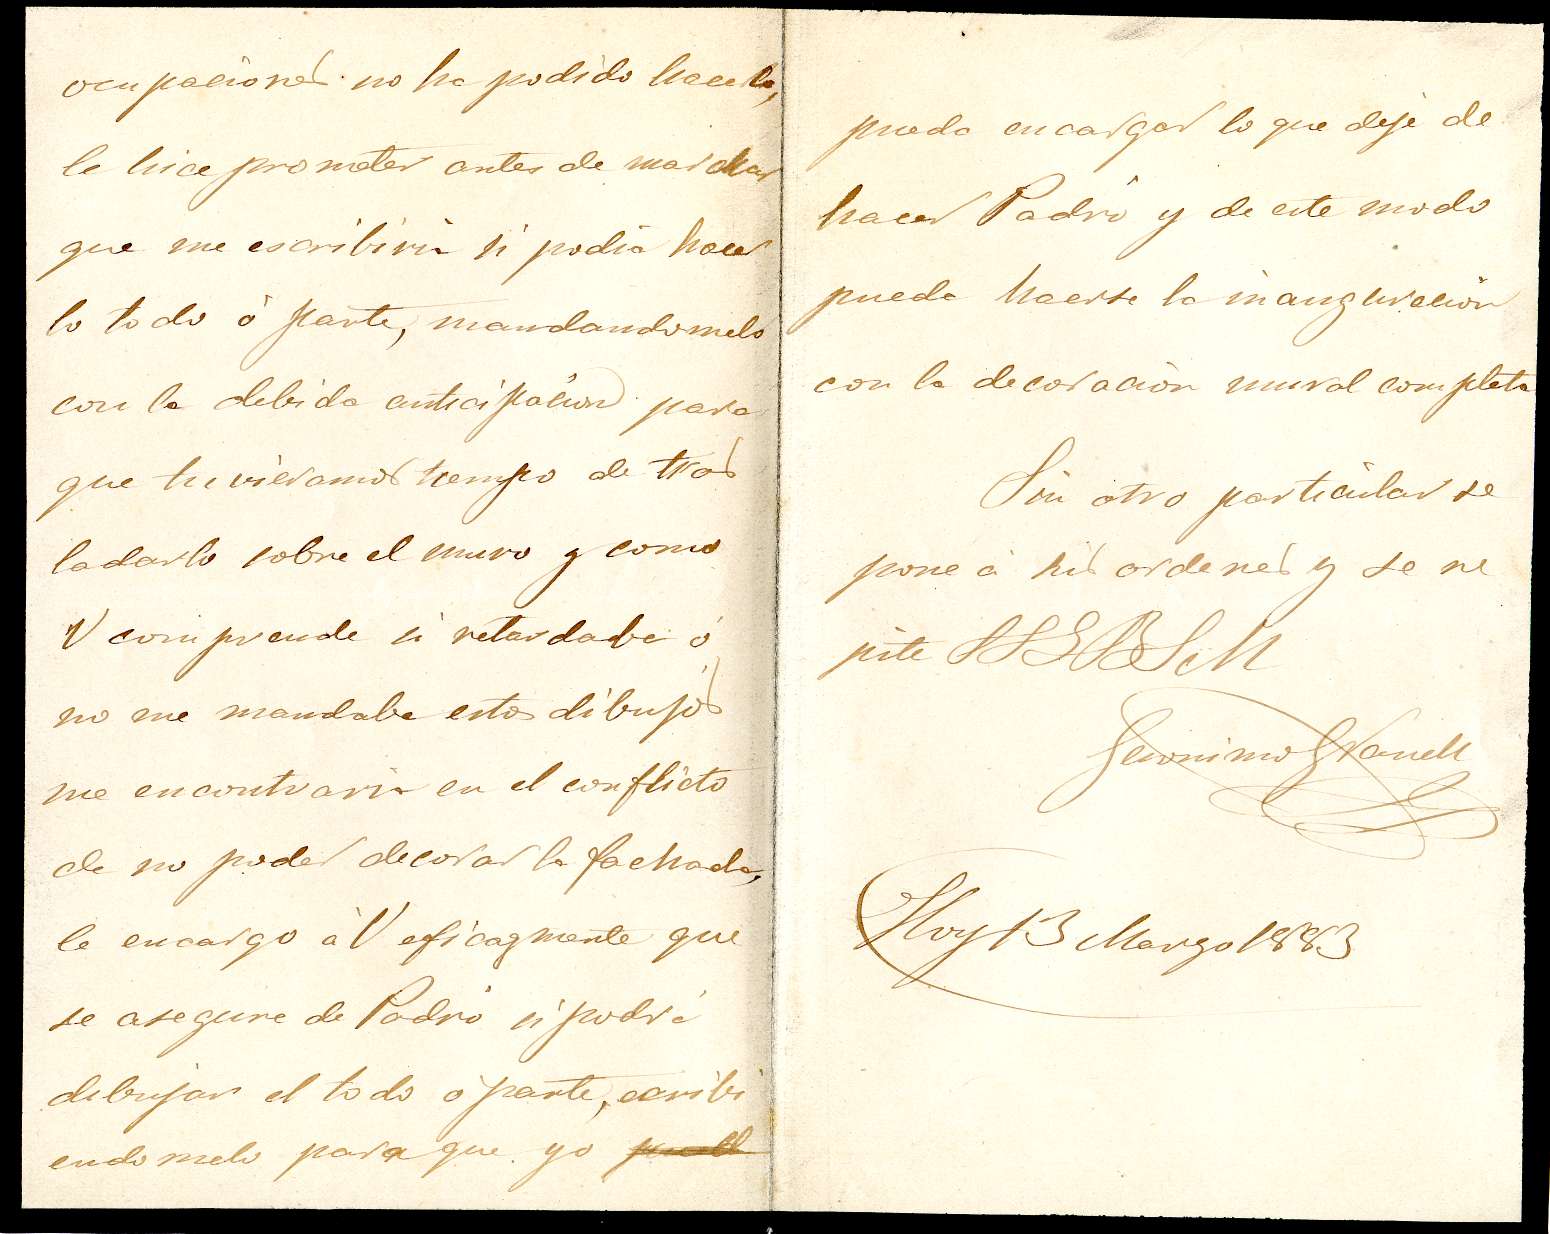 ocupaciones no ha podido hacerlo,
le hice prometer antes de marchar
que me escribiria si podia hacer
lo todo ó parte, mandandomelo
con la debida anticipación para
que tuvieramos tiempo de tras
ladarlo sobre el muro y como
V comprende si retardaba ó
no me mandaba estos dibujos
me encontraria en el conflicto
de no poder decorar la fachada,
le encargo à V eficazmente que
se asegure de Padró si podrá
dibujar el todo ó parte, escribi
endomelo para que yo
pueda encargar lo que deje de
hacer Padró y de este modo
pueda hacerse la inauguración
con la decoración mural completa
Sin otro particular se
pone à sus ordenes y se re
pite SSSQBSM
Geronimo Granell
Hoy 13 Marzo 1883